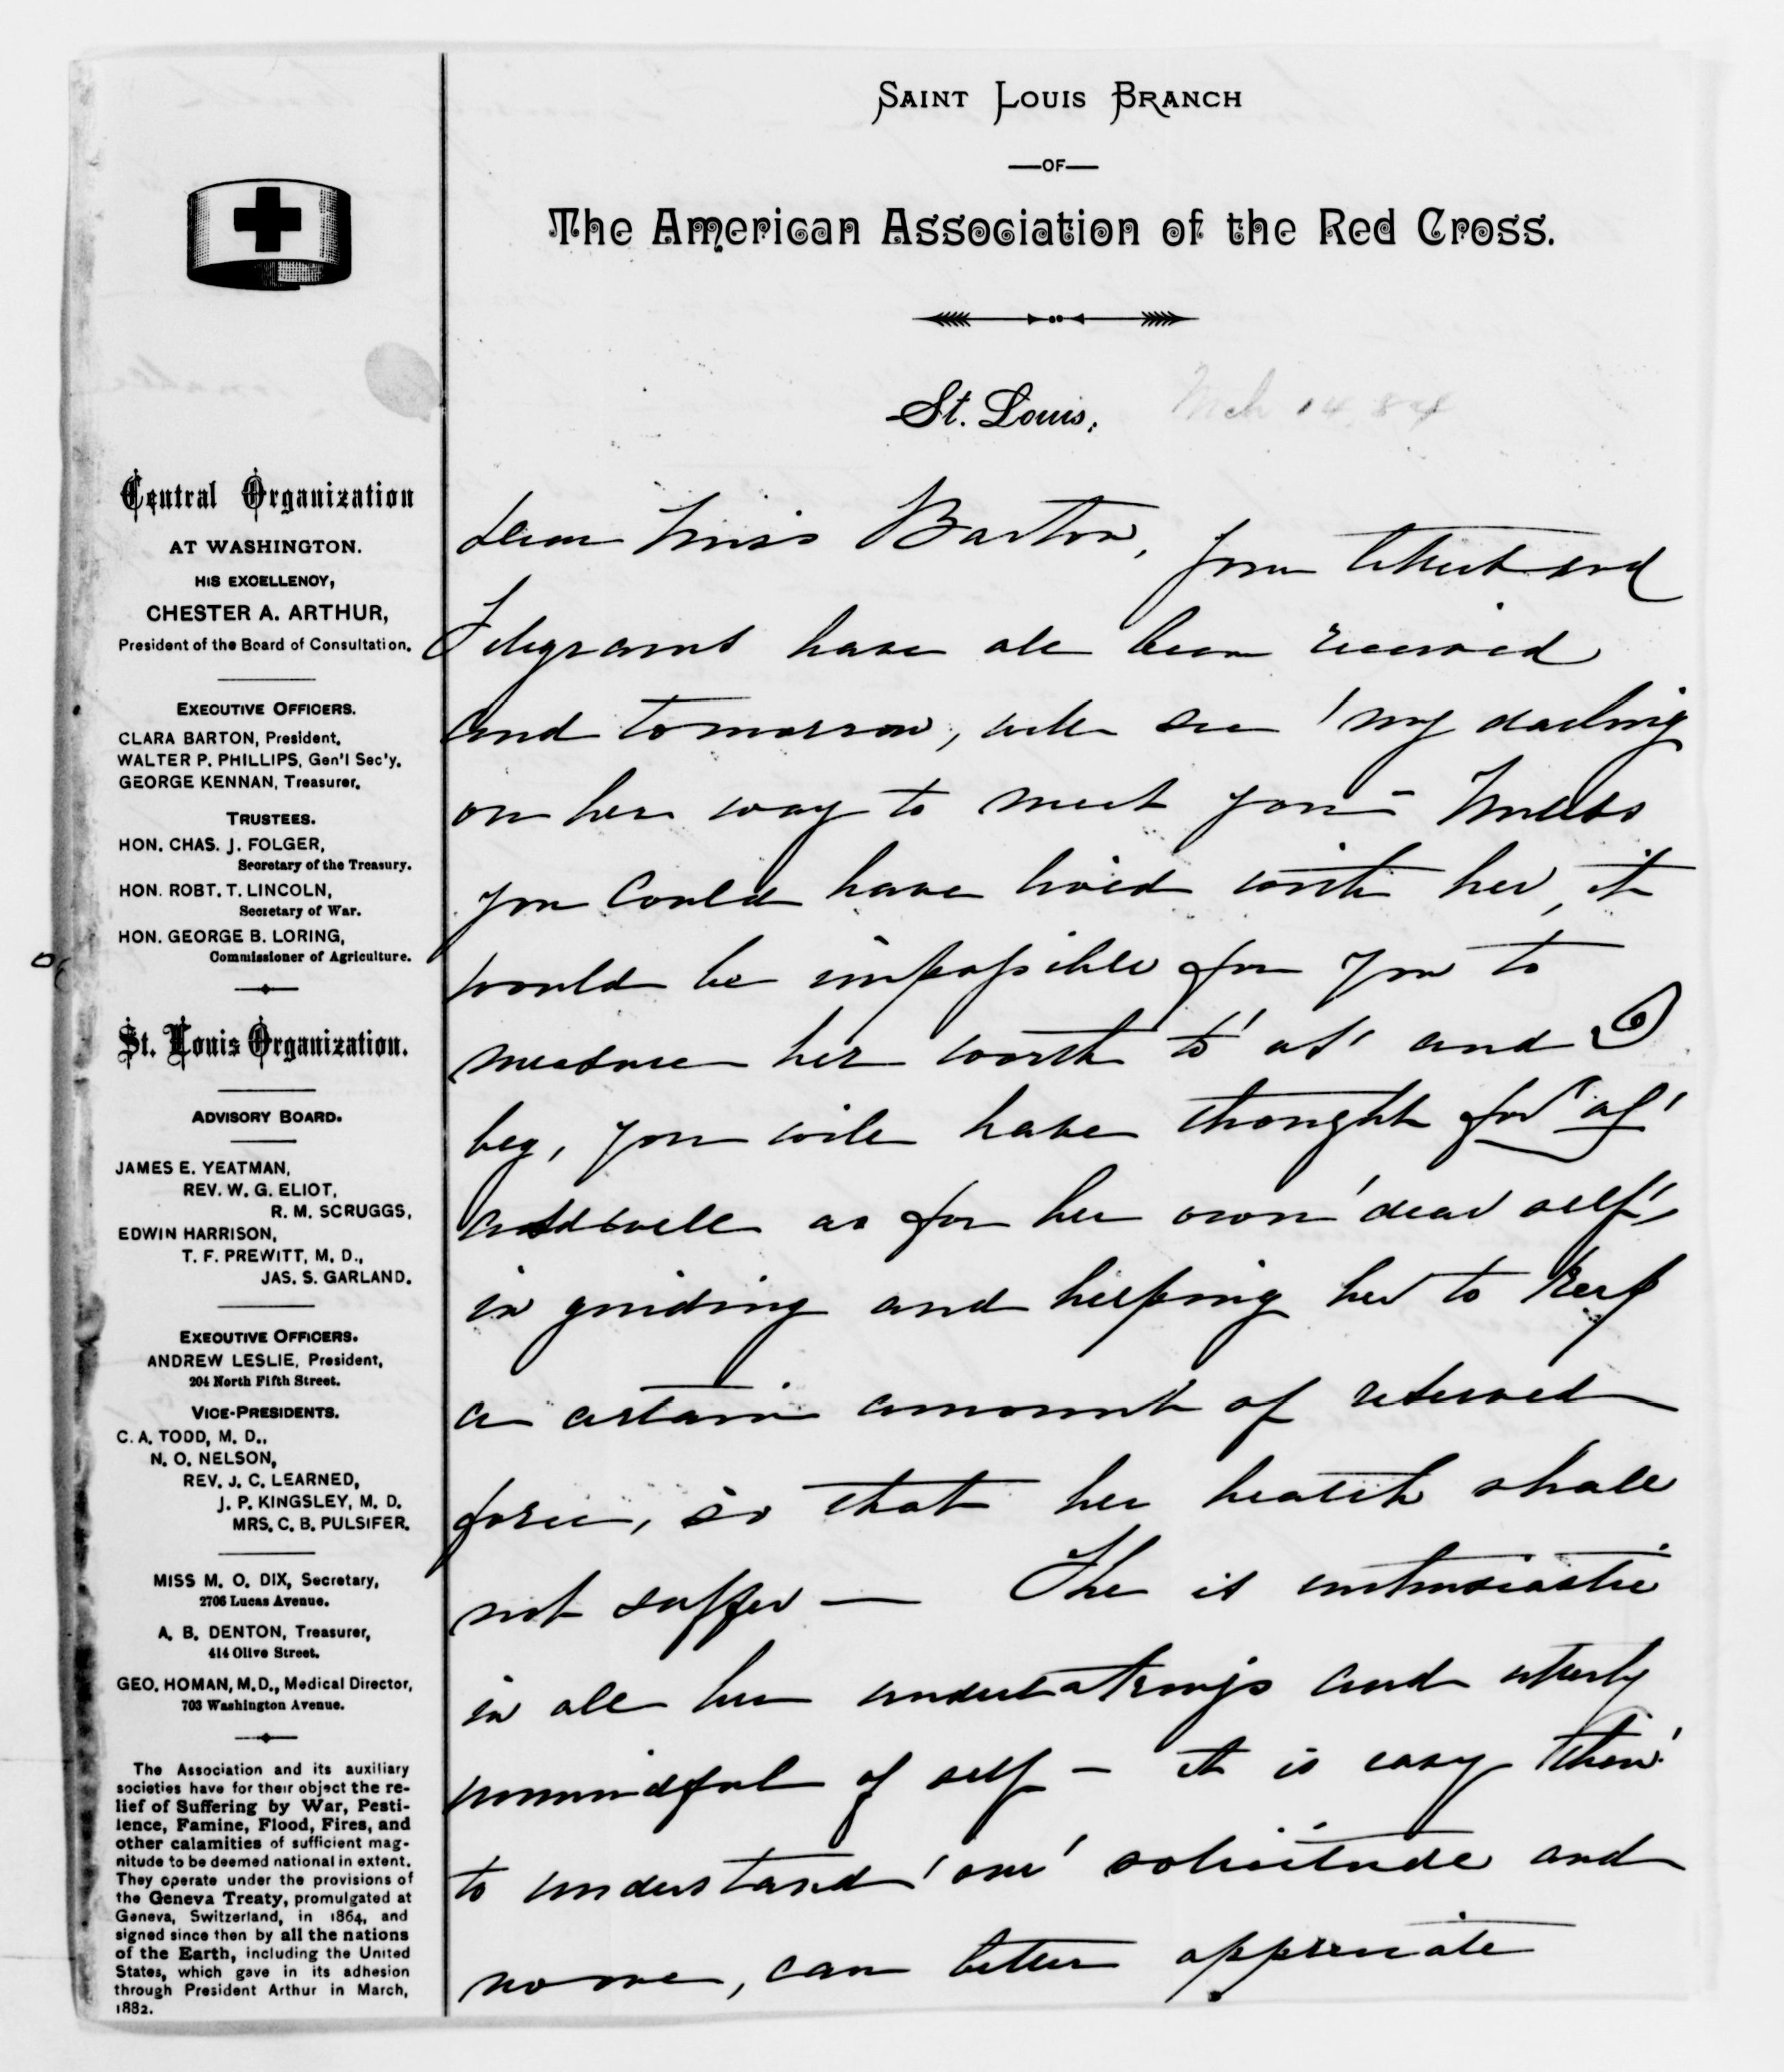 SAINT LOUIS BRANCH
—OF—
The American Association of the Red Cross.
St. Louis, Mch 14, 84
Central Organization
AT WASHINGTON.
HIS EXCELLENCY,
CHESTER A. ARTHUR,
President of the Board of Consultation.
EXECUTIVE OFFICERS.
CLARA BARTON, President,
WALTER P. PHILLIPS, Gen'l Sec'y.
GEORGE KENNAN, Treasurer.
TRUSTEES.
HON. CHAS. J. FOLGER,
Secretary of the Treasury.
HON. ROBT. T. LINCOLN,
Secretary of War.
HON. GEORGE B. LORING,
Commissioner of Agriculture.
St. Louis Organization.
ADVISORY BOARD.
JAMES E. YEATMAN,
REV. W. G. ELIOT,
R. M. SCRUGGS,
EDWIN HARRISON,
T. F. PREWITT, M. D.,
JAS. S. GARLAND.
EXECUTIVE OFFICERS.
ANDREW LESLIE, President,
204 North Fifth Street.
VICE-PRESIDENTS.
C. A. TODD, M. D.,
N. O. NELSON,
REV. J. C. LEARNED,
J. P. KINGSLEY, M. D.
MRS. C. B. PULSIFER.
MISS M. O. DIX, Secretary,
2706 Lucas Avenue.
A. B. DENTON, Treasurer,
414 Olive Street.
GEO. HOMAN, M.D., Medical Director,
703 Washington Avenue.
The Association and its auxiliary
societies have for their object the re-
lief of Suffering by War, Pesti-
lence, Famine, Flood, Fires, and
other calamities of sufficient mag-
nitude to be deemed national in extent.
They operate under the provisions of
the Geneva Treaty, promulgated at
Geneva, Switzerland, in 1864, and
signed since then by all the nations
of the Earth, including the United
States, which gave in its adhesion
through President Arthur in March,
1882.
Dear Miss Barton,
Your letters and
Telegrams have all been received
and tomorrow, will see 'my darling'
on her way to meet you – Unless
you could have lived with her, it
would be impossible for you to
measure her worth to 'us' and I
beg, you will have thought for 'us'
as well as for her own 'dear self',
in guiding and helping her to keep
a certain amount of reserved
force, so that her health shall
not suffer — She is enthusiastic
in all her undertakings and utterly
unmindful of self – It is easy then
to understand 'our' solicitude and
no one, can better appreciate